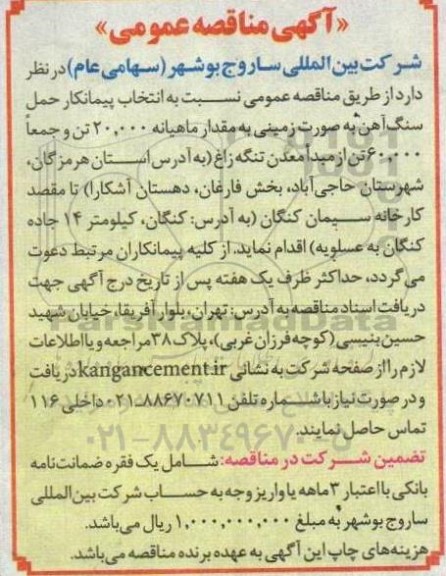 «آگهی مناقصه عمومی»
شرکت بین المللی ساروج بوشهر (سهامی عام) در نظر
دارد از طریق مناقصه عمومی نسبت به انتخاب پیمانکار حمل
سنگ آهن به صورت زمینی به مقدار ماهیانه ۲۰,۰۰۰ تن و جمعاً
۶۰,۰۰۰ تن از مبدأ معدن تنگه زاغ (به آدرس استان هرمزگان،
شهرستان حاجی‌آباد، بخش فارغان، دهستان آشکارا) تا مقصد
کارخانه سیمان کنگان (به آدرس: کنگان، کیلومتر ۱۴ جاده
کنگان به عسلویه) اقدام نماید. از کلیه پیمانکاران مرتبط دعوت
می‌گردد، حداکثر ظرف یک هفته پس از تاریخ درج آگهی جهت
دریافت اسناد مناقصه به آدرس: تهران، بلوار آفریقا، خیابان شهید
حسین بنیسی (کوچه فرزان غربی)، پلاک ۳۸ مراجعه و یا اطلاعات
لازم را از صفحه شرکت به نشانی kangancement.ir دریافت
و در صورت نیاز با شماره تلفن ۸۸۶۷۰۷۱۱-۰۲۱ داخلی ۱۱۶
تماس حاصل نمایند.
تضمین شرکت در مناقصه: شامل یک فقره ضمانت‌نامه
بانکی با اعتبار ۳ ماهه یا واریز وجه به حساب شرکت بین‌المللی
ساروج بوشهر به مبلغ ۱,۰۰۰,۰۰۰,۰۰۰ ریال می‌باشد.
هزینه‌های چاپ این آگهی به عهده برنده مناقصه می‌باشد.
ParsNamadData
۰۲۱-۸۸۳۴۹۶۷۰-۵